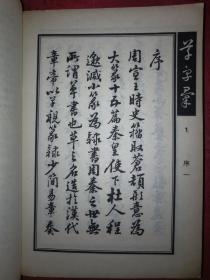 序
周宣王時史籀取蒼頡形意為
大篆十五篇秦皇使下杜人程
邈減小篆為隸書周秦之世無
所謂草書也草之名造於漢代
章帝以早視篆隸少簡易章奏
草字彙
序
一